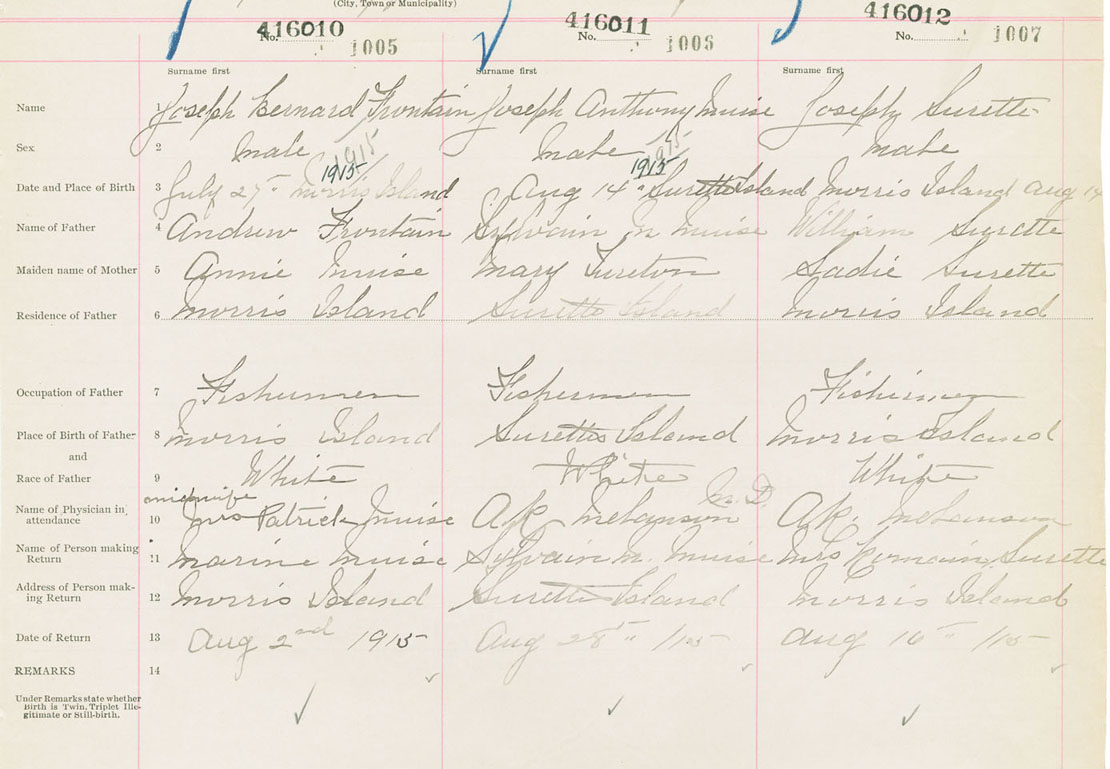 (City, Town or Municipality)
416010 416011 416012
No. 1005 No. 1006 No. 1007
Surname first Surname first Surname first
Name 1 Joseph Bernard Frontain Joseph Anthony Muise Joseph Surette
Sex 2 male male male
1915 1915
1915 1915
Date and Place of Birth 3 July 25" Morris Island Aug 14" Surette Island Morris Island Aug 14
Name of Father 4 Andrew Frontain Sylvain M Muise William Surette
Maiden name of Mother 5 Annie Muise Mary Sadie Surette
Residence of Father 6 Morris Island Surette Island Morris Island
Occupation of Father 7 Fishermen Fishermen Fishermen
Place of Birth of Father 8 Morris Island Surette Island Morris Island
and
Race of Father 9 White White White
midwife M.D.
Name of Physician in attendance 10 Mrs Patrick Muise A.K. Melanson A.K. Melanson
Name of Person making Return 11 Marine Muise Sylvain M. Muise Mrs Romain Surette
Address of Person making Return 12 Morris Island Surette Island Morris Island
Date of Return 13 Aug 2nd 1915 Aug 28" /15 Aug 16" /15
REMARKS 14
Under Remarks state whether
Birth is Twin, Triplet Ille-
gitimate or Still-birth.